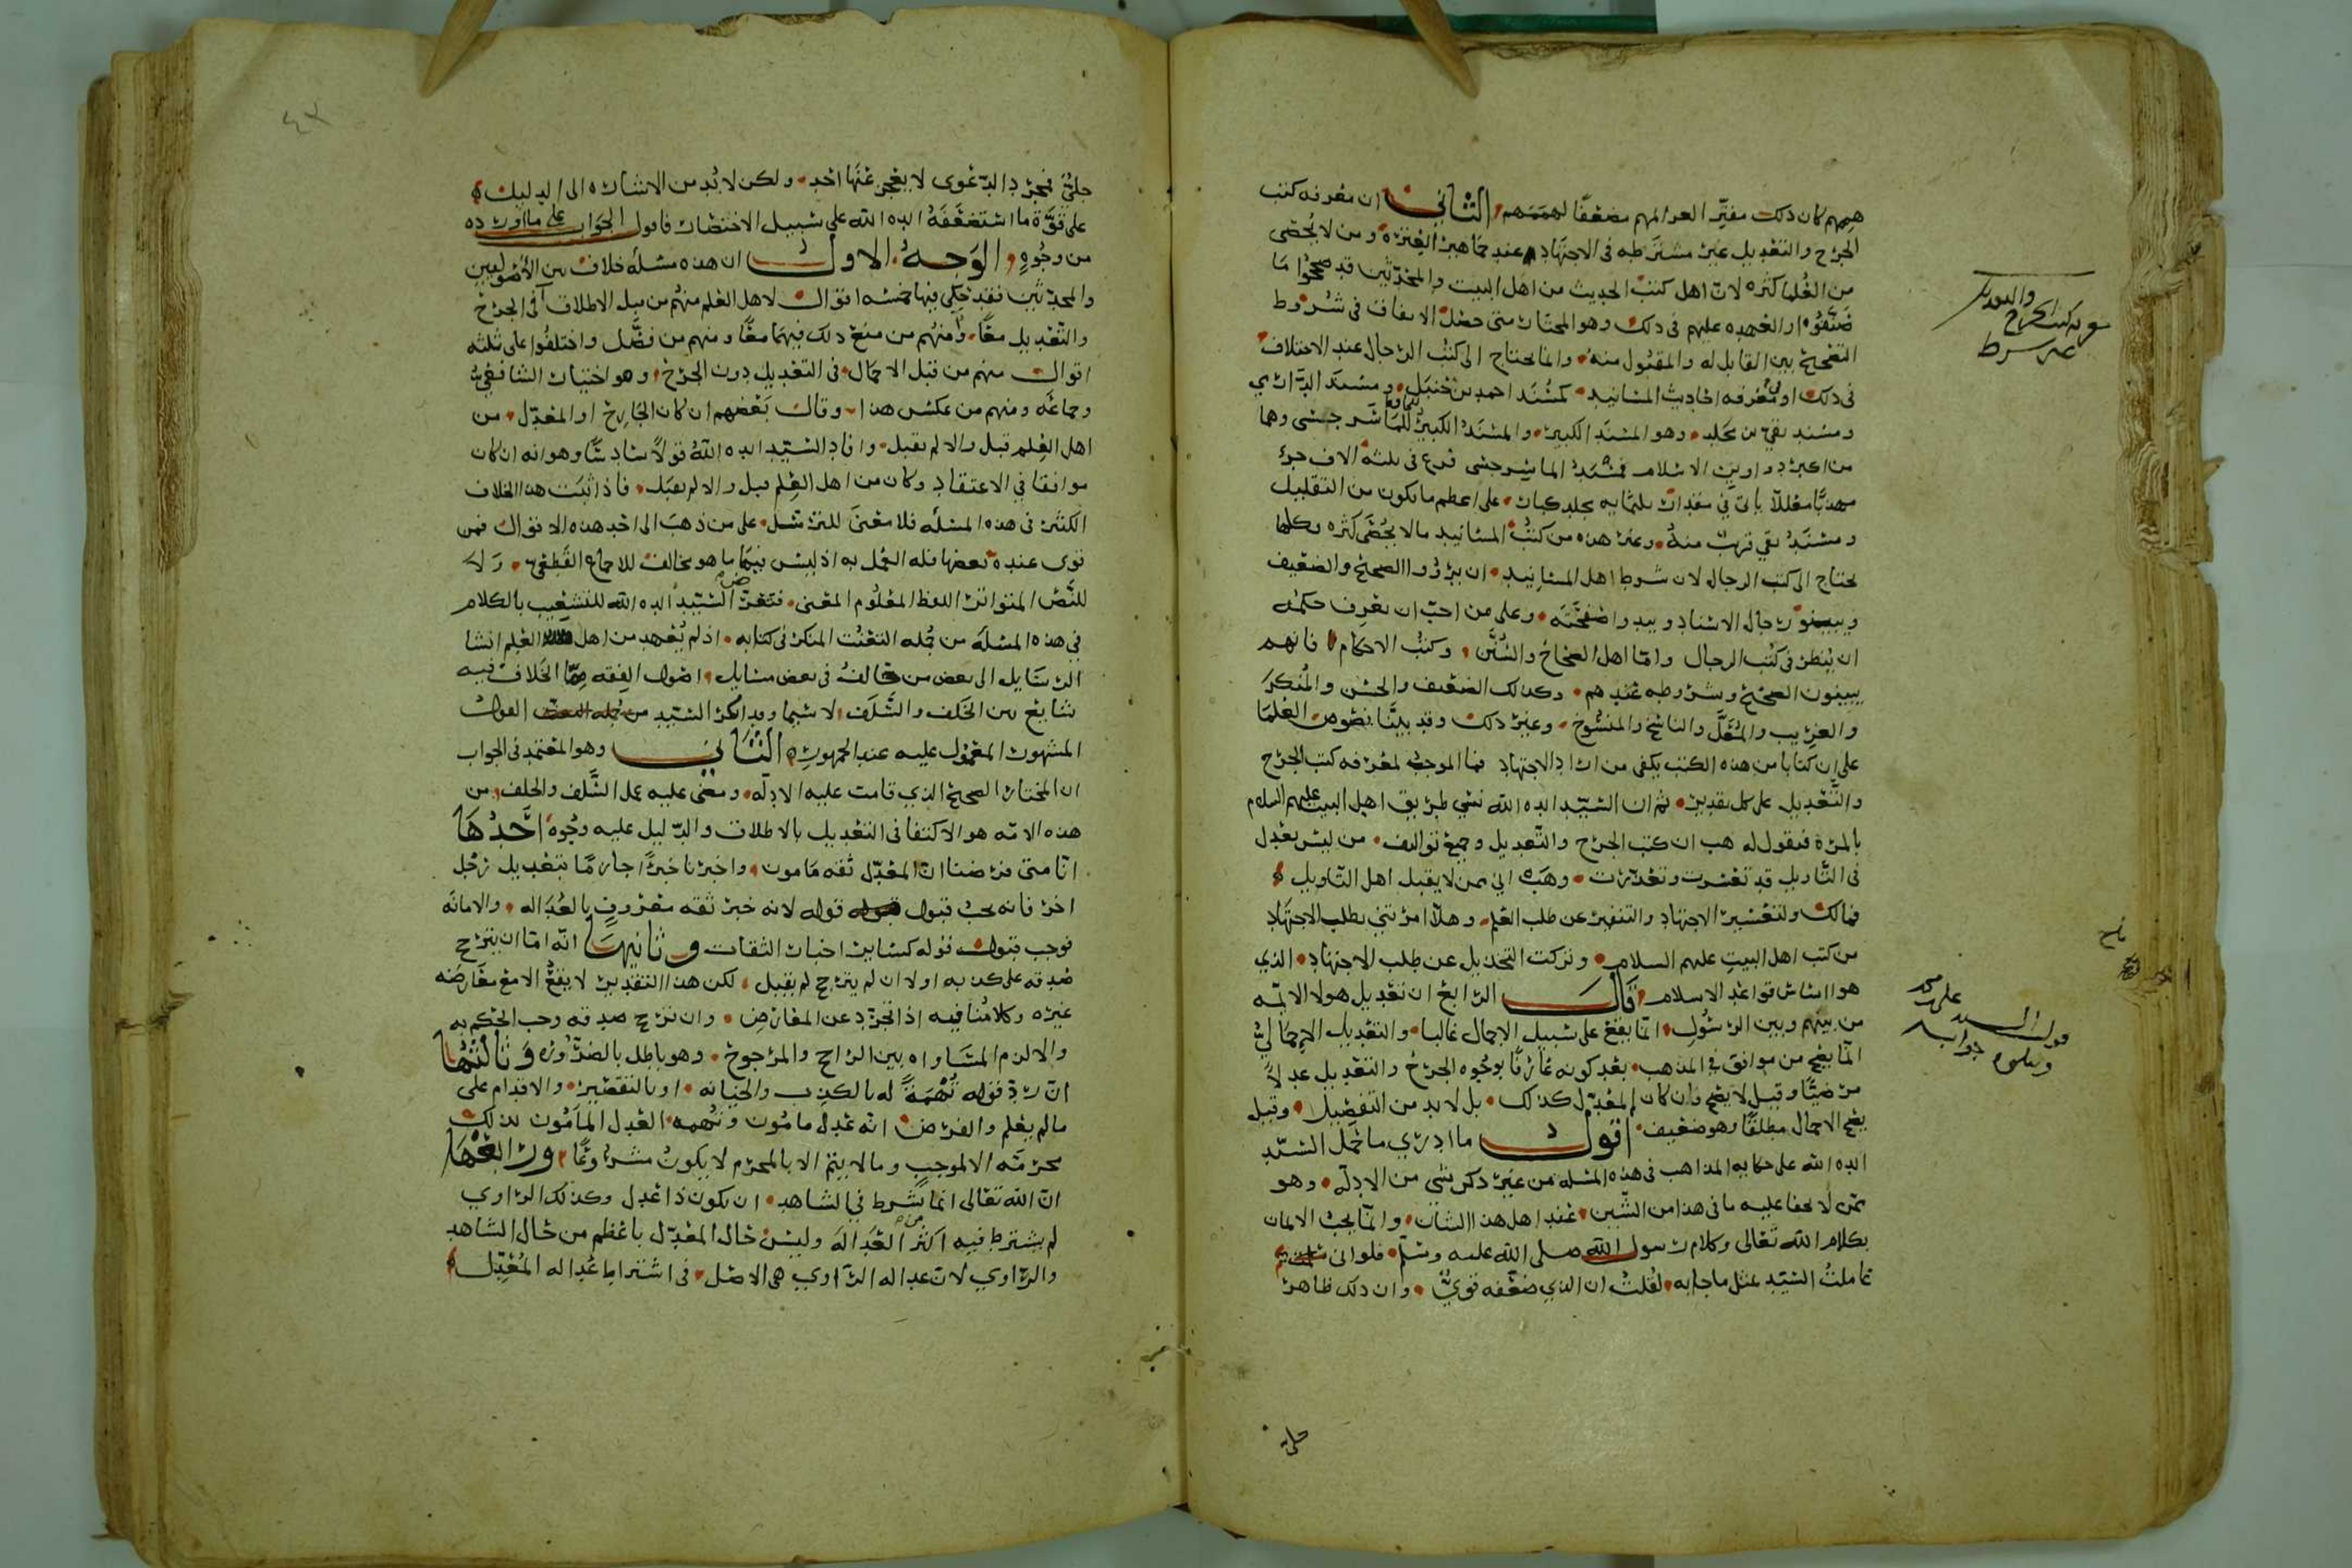 هممهم كان ذلك مفتر العزائمهم مضعفا لهممهم الثاني ان معرفه كتب
الجرح والتعديل غير مشترطه في الاجتهاد عند جماهير العتره ومن لا يحصى
من العلما كثره لان اهل كتب الحديث من اهل البيت والمحدثين قد صححوا ما
صنفوه او العهده عليهم في ذلك وهو المختار متى حصل الاتفاق في شروط
التصحيح بين القابل له والمقبول منه وانما يحتاج الى كتب الرجال عند الاختلاف
في ذلك او معرفه احاديث المسانيد كمسند احمد بن حنبل ومسند الدارمي
ومسند بقي بن مخلد وهو المسند الكبير والمسند الكبير للماسرجسي وهما
من اكبر دواوين الاسلام فمسند الماسرجسي فرغ في ثلثة الاف جزء
مهذبا معللا ياتي في مقدار ثلثمايه مجلد كبار على اعظم ما يكون من التقليل
ومسند بقي قريب منه وغير هذه من كتب المسانيد مالا يحصى كثره وكلها
تحتاج الى كتب الرجال لان شرط اهل المسانيد ان يوردوا الصحيح والضعيف
ويبينوا رجال الاسناد ويبدوا صفحته وعلى من احب ان يعرف حكمه
ان ينظر في كتب الرجال واما اهل الصحاح والسنن وكتب الاحكام فانهم
يبينون الصحيح وشروطه عندهم وكذلك الضعيف والحسن والمنكر
والغريب والمعل والناسخ والمنسوخ وغير ذلك وقد بينا نصوص العلما
على ان كتابا من هذه الكتب يكفي من اراد الاجتهاد فما الموجب لمعرفه كتب الجرح
والتعديل على كل تقدير ثم ان السيد ايده الله نسي طريق اهل البيت عليهم السلام
بالمرة فنقول له هب ان كتب الجرح والتعديل وجميع تواليف من ليس بعدل
في التاويل قد تعسرت وتعذرت وهب اني ممن لا يقبل اهل التاويل
فمالك ولتعسير الاجتهاد والتنفير عن طلب العلم وهلا امرتني بطلب الاجتهاد
من كتب اهل البيت عليهم السلام وتركت التخذيل عن طلب الاجتهاد الذي
هو اساس قواعد الاسلام قال الرابع ان تعديل هولا الايمه
من بينهم وبين الرسول انما يقع على سبيل الاجمال غالبا والتعديل الاجمالي
انما يصح من موافق في المذهب بعد كونه عارفا بوجوه الجرح والتعديل عدلا
مرضيا وقيل لا يصح وان كان المعدل كذلك بل لابد من التفصيل وقيل
يصح الاجمال مطلقا وهو ضعيف اقول ما ادري ما حمل السيد
ايده الله على حكايه المذاهب في هذه المسله من غير ذكر شي من الادله وهو
ممن لا يخفا عليه ما في هذا من الشين عند اهل هذا الشان وانما يجب الايمان
بكلام الله تعالى وكلام رسول الله صلى الله عليه وسلم فلو اني
عاملت السيد بمثل ما جا به لقلت ان الذي ضعفه قوي وان ذلك ظاهر
جلي
معرفه كتب الجرح والتعديل
غير شرط
قول السيد علي بن محمد
وجوابه
جلي فمجرد الدعوى لا يعجز عنها احد ولكن لابد من الاشاره الى الدليل
على قوة ما استضعفه ايده الله على سبيل الاختصار فاقول الجواب على ما اورده
من وجوه الوجه الاول ان هذه مسأله خلاف بين الاصوليين
والمحدثين فقد حكي فيها خمسه اقوال لاهل العلم منهم من قبل الاطلاق في الجرح
والتعديل معا ومنهم من منع ذلك فيهما معا ومنهم من فصل واختلفوا على ثلثه
اقوال منهم من قبل الاجمال في التعديل دون الجرح وهو اختيار الشافعي
وجماعه ومنهم من عكس هذا وقال بعضهم ان كان الجارح او المعدل من
اهل العلم قبل والا لم يقبل وافاد السيد ايده الله قولا سادسا وهو انه ان كان
موافقا في الاعتقاد وكان من اهل العلم قبل والا لم يقبل فاذا ثبت هذا الخلاف
الكثير في هذه المسله فلا معنى للترسل على من ذهب الى احد هذه الاقوال فمن
قوى عنده بعضها فله العمل به اذ ليس فيها ما هو مخالف للاجماع القطعي ولا
للنص المتواتر اللفظ المعلوم المعنى فتعرض السيد ايده الله للتشغيب بالكلام
في هذه المسله من جمله التعنت المنكر في كتابه اذ لم يعهد من اهل العلم انشا
الرسايل الى بعض من خالف في بعض مسايل اصول الفقه مما الخلاف فيه
شايع بين الخلف والسلف لا سيما وقد انكر السيد القول
المشهور المعمول عليه عند الجمهور الثاني وهو المعتمد في الجواب
ان المختار الصحيح الذي قامت عليه الادله ومضى عليه عمل السلف والخلف من
هذه الامه هو الاكتفا في التعديل بالاطلاق والدليل عليه وجوه احدها
انا متى فرضنا ان المعدل ثقه مامون واخبرنا خبرا جازما بتعديل رجل
اخر فانه يجب قبول قوله لانه خبر ثقه معروف بالعداله والامانه
فوجب قبول قوله كساير اخبار الثقات وثانيها انه اما ان يترجح
صدقه على كذبه اولا ان لم يترجح لم يقبل لكن هذا التقدير لا يقع الا مع معارضه
غيره وكلامنا فيه اذا تجرد عن المعارض وان ترجح صدقه وجب الحكم به
والا لزم المساواه بين الراجح والمرجوح وهو باطل بالضروره وثالثها
ان رد قوله تهمة له بالكذب والخيانه او بالتقصير والاقدام على
ما لم يعلم والفرض انه عدل مامون وتهمه العدل المامون لذلك
محرمه الا لموجب ومالا يتم الا بالمحرم لا يكون مشروعا ورابعها
ان الله تعالى انما شرط في الشاهد ان يكون ذا عدل وكذلك الراوي
لم يشترط فيه اكثر من العداله وليس حال المعدل باعظم من حال الشاهد
والراوي لان عداله الراوي هي الاصل في اشتراط عداله المعدل